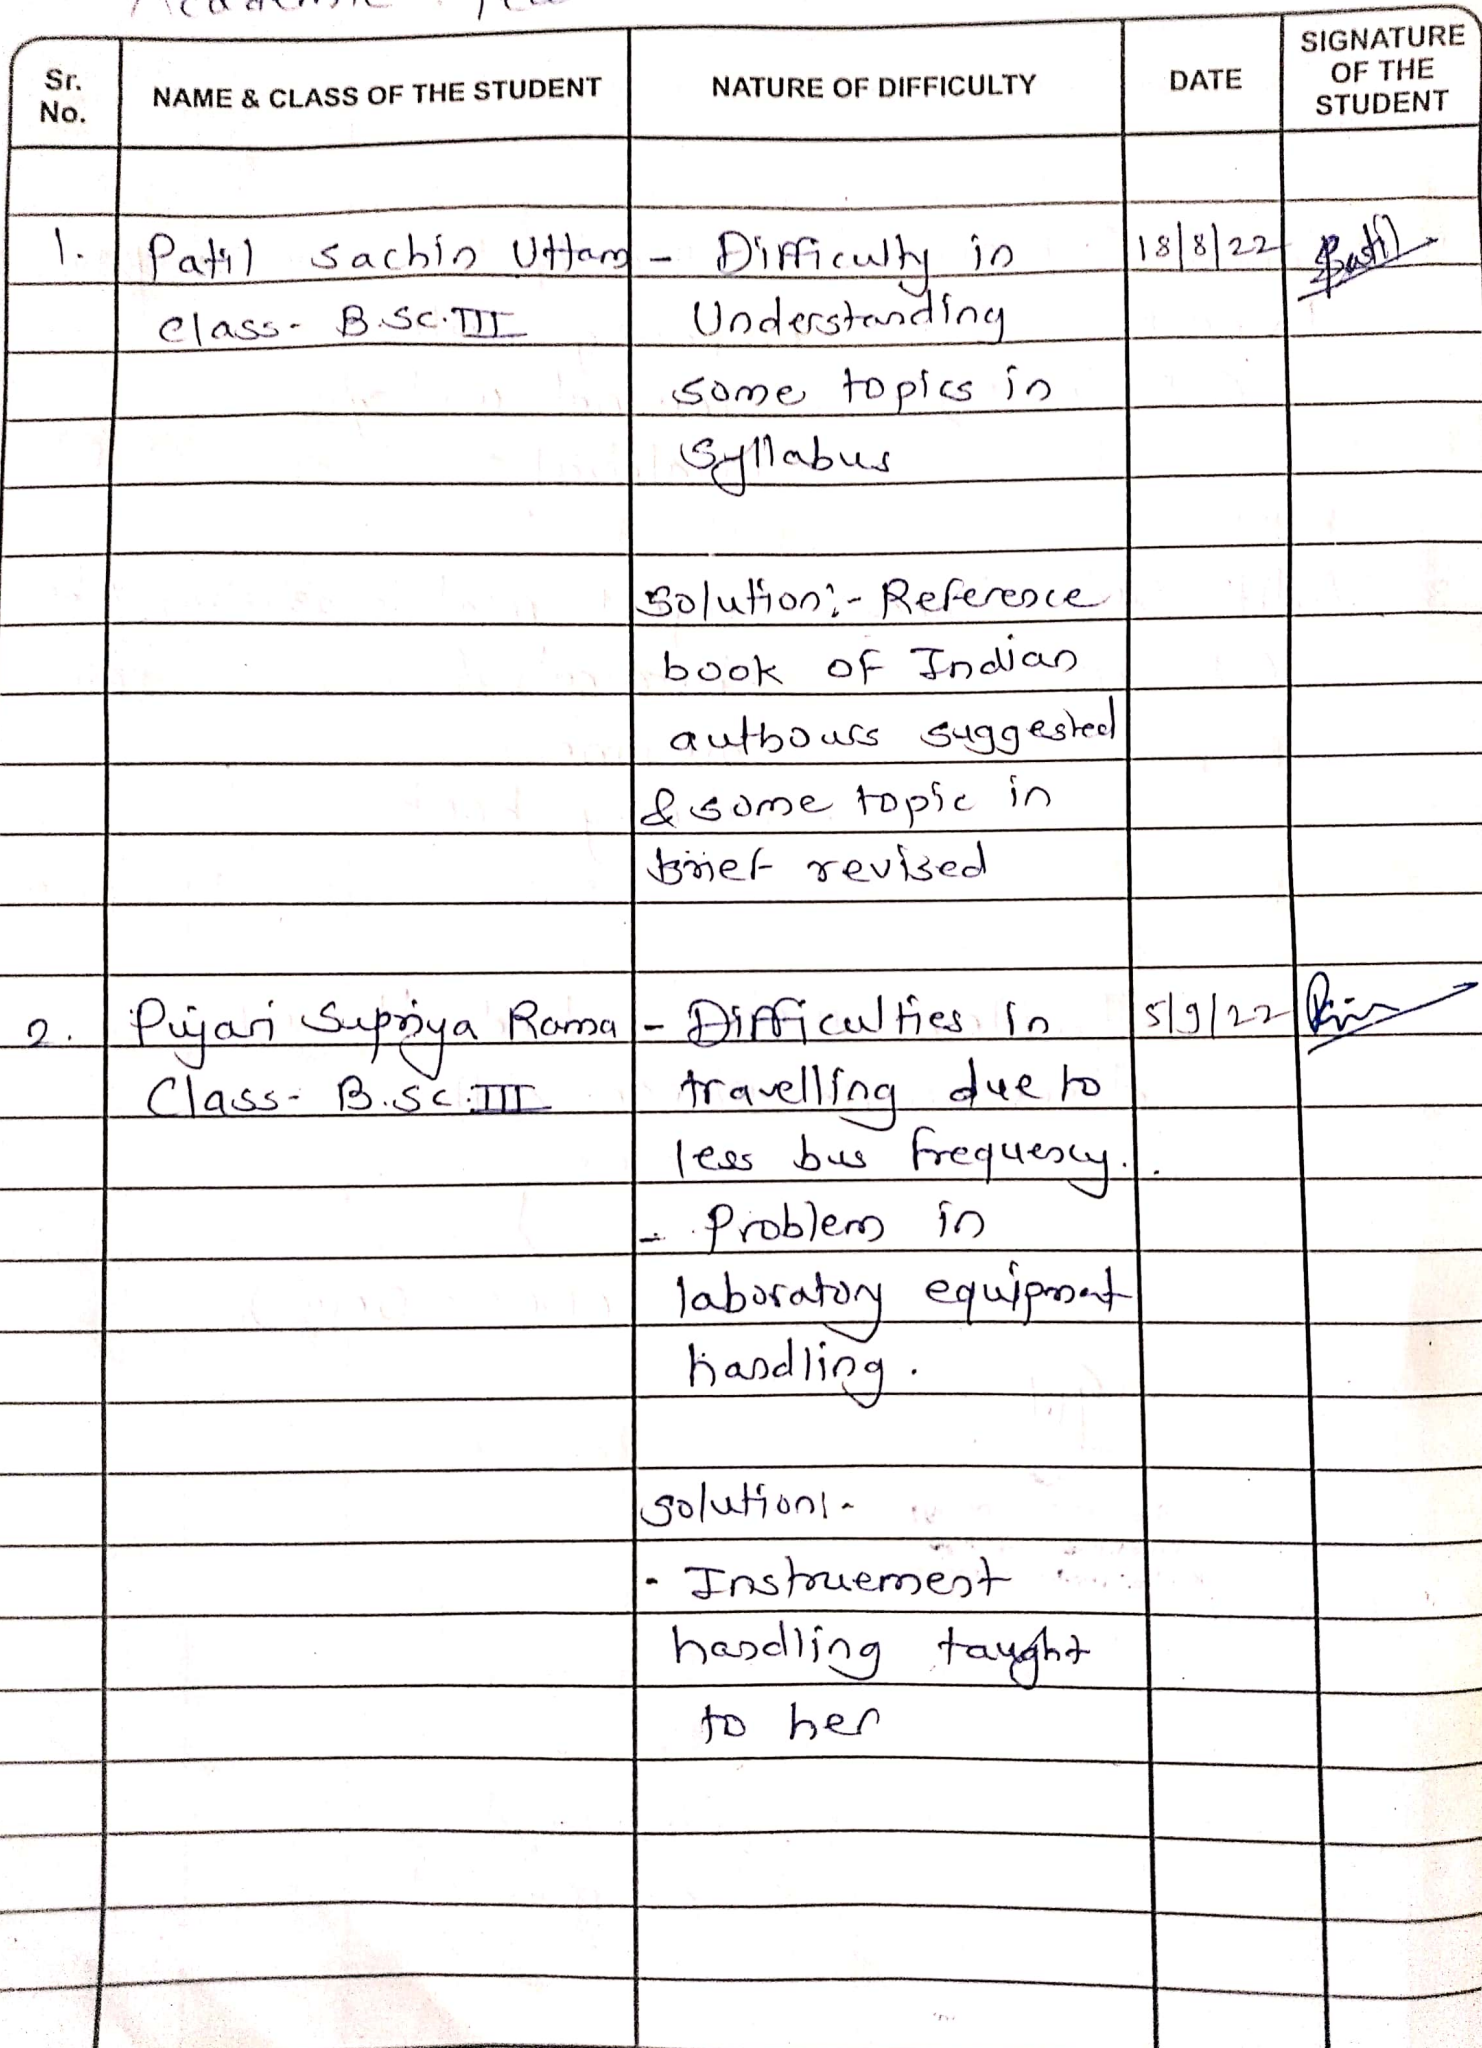 Academic
Sr. No.
NAME & CLASS OF THE STUDENT
NATURE OF DIFFICULTY
DATE
SIGNATURE OF THE STUDENT
1. Patil Sachin Uttam - Difficulty in 18/8/22 Patil
Class- B.Sc.III Understanding
some topics in
Syllabus
Solution:- Reference
book of Indian
authours suggested
& some topic in
brief revised
2. Pujari Supriya Rama - Difficulties in 5/9/22
Class- B.Sc.III travelling due to
less bus frequency.
- Problem in
laboratory equipment
handling.
Solution:-
- Instruement
handling taught
to her